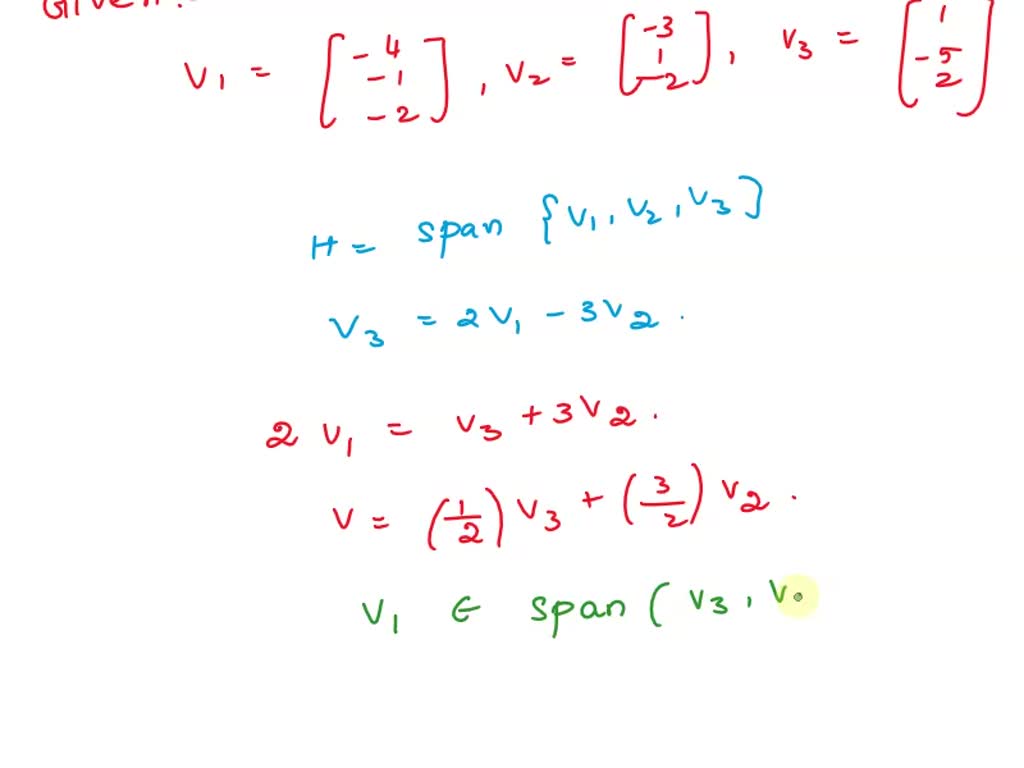 Given:
V1 = [-4 -1 -2], V2 = [-3 1 -2], V3 = [1 -5 2]
H = span {V1, V2, V3]
V3 = 2V1 - 3V2.
2 V1 = V3 + 3V2.
V = (1/2) V3 + (3/2) V2.
V1 ∈ span ( V3, V